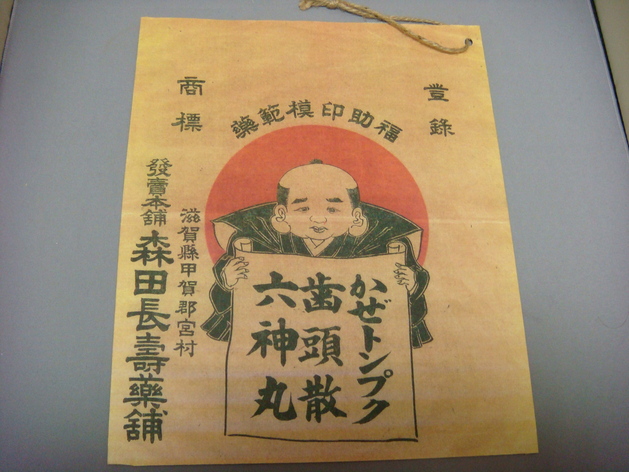 登錄
商標
福助印模範藥
かぜトンプク
歯頭散
六神丸
滋賀縣甲賀郡宮村
發賣本舗 森田長壽藥舖